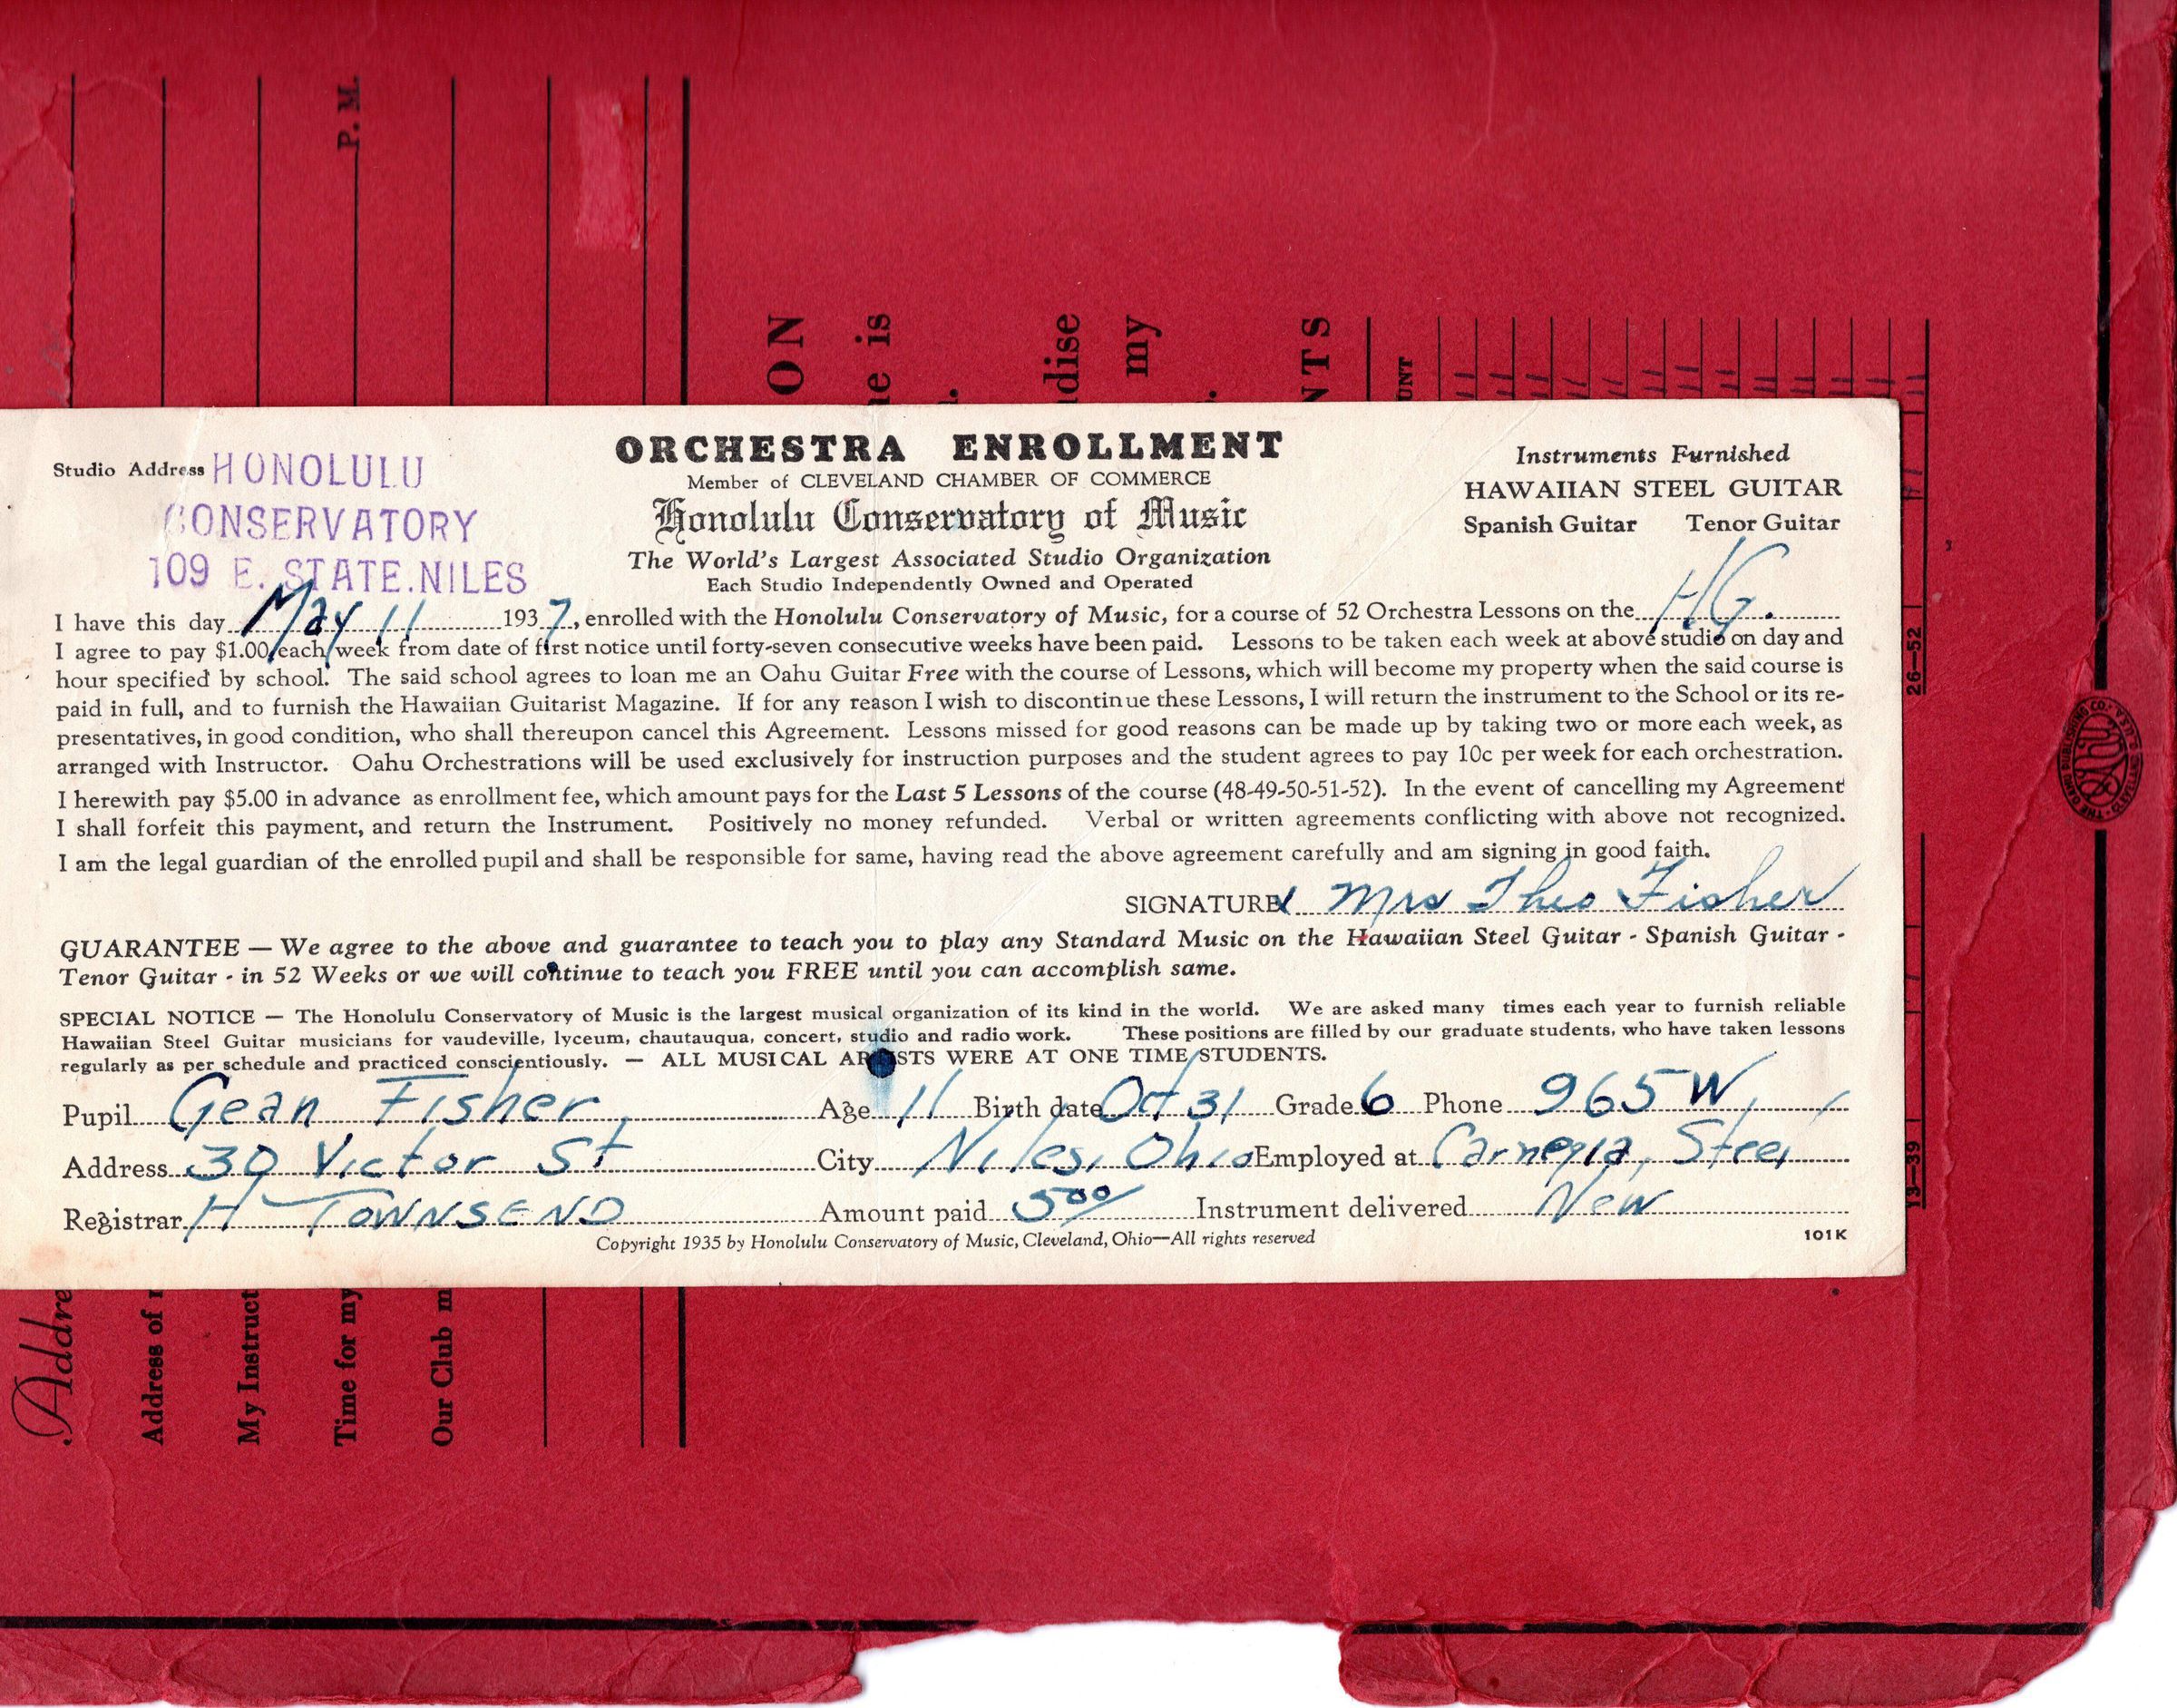 P. M.
ON
ne is
n.
dise
my
NTS
UNT
ORCHESTRA ENROLLMENT
Member of CLEVELAND CHAMBER OF COMMERCE
Honolulu Conservatory of Music
The World's Largest Associated Studio Organization
Each Studio Independently Owned and Operated
Studio Address HONOLULU
CONSERVATORY
109 E. STATE. NILES
Instruments Furnished
HAWAIIAN STEEL GUITAR
Spanish Guitar Tenor Guitar
I have this day May 11 1937, enrolled with the Honolulu Conservatory of Music, for a course of 52 Orchestra Lessons on the H G.
I agree to pay $1.00 each week from date of first notice until forty-seven consecutive weeks have been paid. Lessons to be taken each week at above studio on day and
hour specified by school. The said school agrees to loan me an Oahu Guitar Free with the course of Lessons, which will become my property when the said course is
paid in full, and to furnish the Hawaiian Guitarist Magazine. If for any reason I wish to discontinue these Lessons, I will return the instrument to the School or its re-
presentatives, in good condition, who shall thereupon cancel this Agreement. Lessons missed for good reasons can be made up by taking two or more each week, as
arranged with Instructor. Oahu Orchestrations will be used exclusively for instruction purposes and the student agrees to pay 10c per week for each orchestration.
I herewith pay $5.00 in advance as enrollment fee, which amount pays for the Last 5 Lessons of the course (48-49-50-51-52). In the event of cancelling my Agreement
I shall forfeit this payment, and return the Instrument. Positively no money refunded. Verbal or written agreements conflicting with above not recognized.
I am the legal guardian of the enrolled pupil and shall be responsible for same, having read the above agreement carefully and am signing in good faith.
SIGNATURE x Mrs Theo Fisher
GUARANTEE — We agree to the above and guarantee to teach you to play any Standard Music on the Hawaiian Steel Guitar - Spanish Guitar -
Tenor Guitar - in 52 Weeks or we will continue to teach you FREE until you can accomplish same.
SPECIAL NOTICE — The Honolulu Conservatory of Music is the largest musical organization of its kind in the world. We are asked many times each year to furnish reliable
Hawaiian Steel Guitar musicians for vaudeville, lyceum, chautauqua, concert, studio and radio work. These positions are filled by our graduate students, who have taken lessons
regularly as per schedule and practiced conscientiously. — ALL MUSICAL ARTISTS WERE AT ONE TIME STUDENTS.
Pupil Gean Fisher Age 11 Birth date Oct 31 Grade 6 Phone 965 W
Address 30 Victor St City Niles, Ohio Employed at Carnegia, Steel
Registrar H TOWNSEND Amount paid 5 00/ Instrument delivered New
Copyright 1935 by Honolulu Conservatory of Music, Cleveland, Ohio—All rights reserved
101K
26—52
13—39
THE OAHU PUBLISHING CO.
CLEVELAND, O., U.S.A.
Oahu
Addre
Address of
My Instruct
Time for my
Our Club m